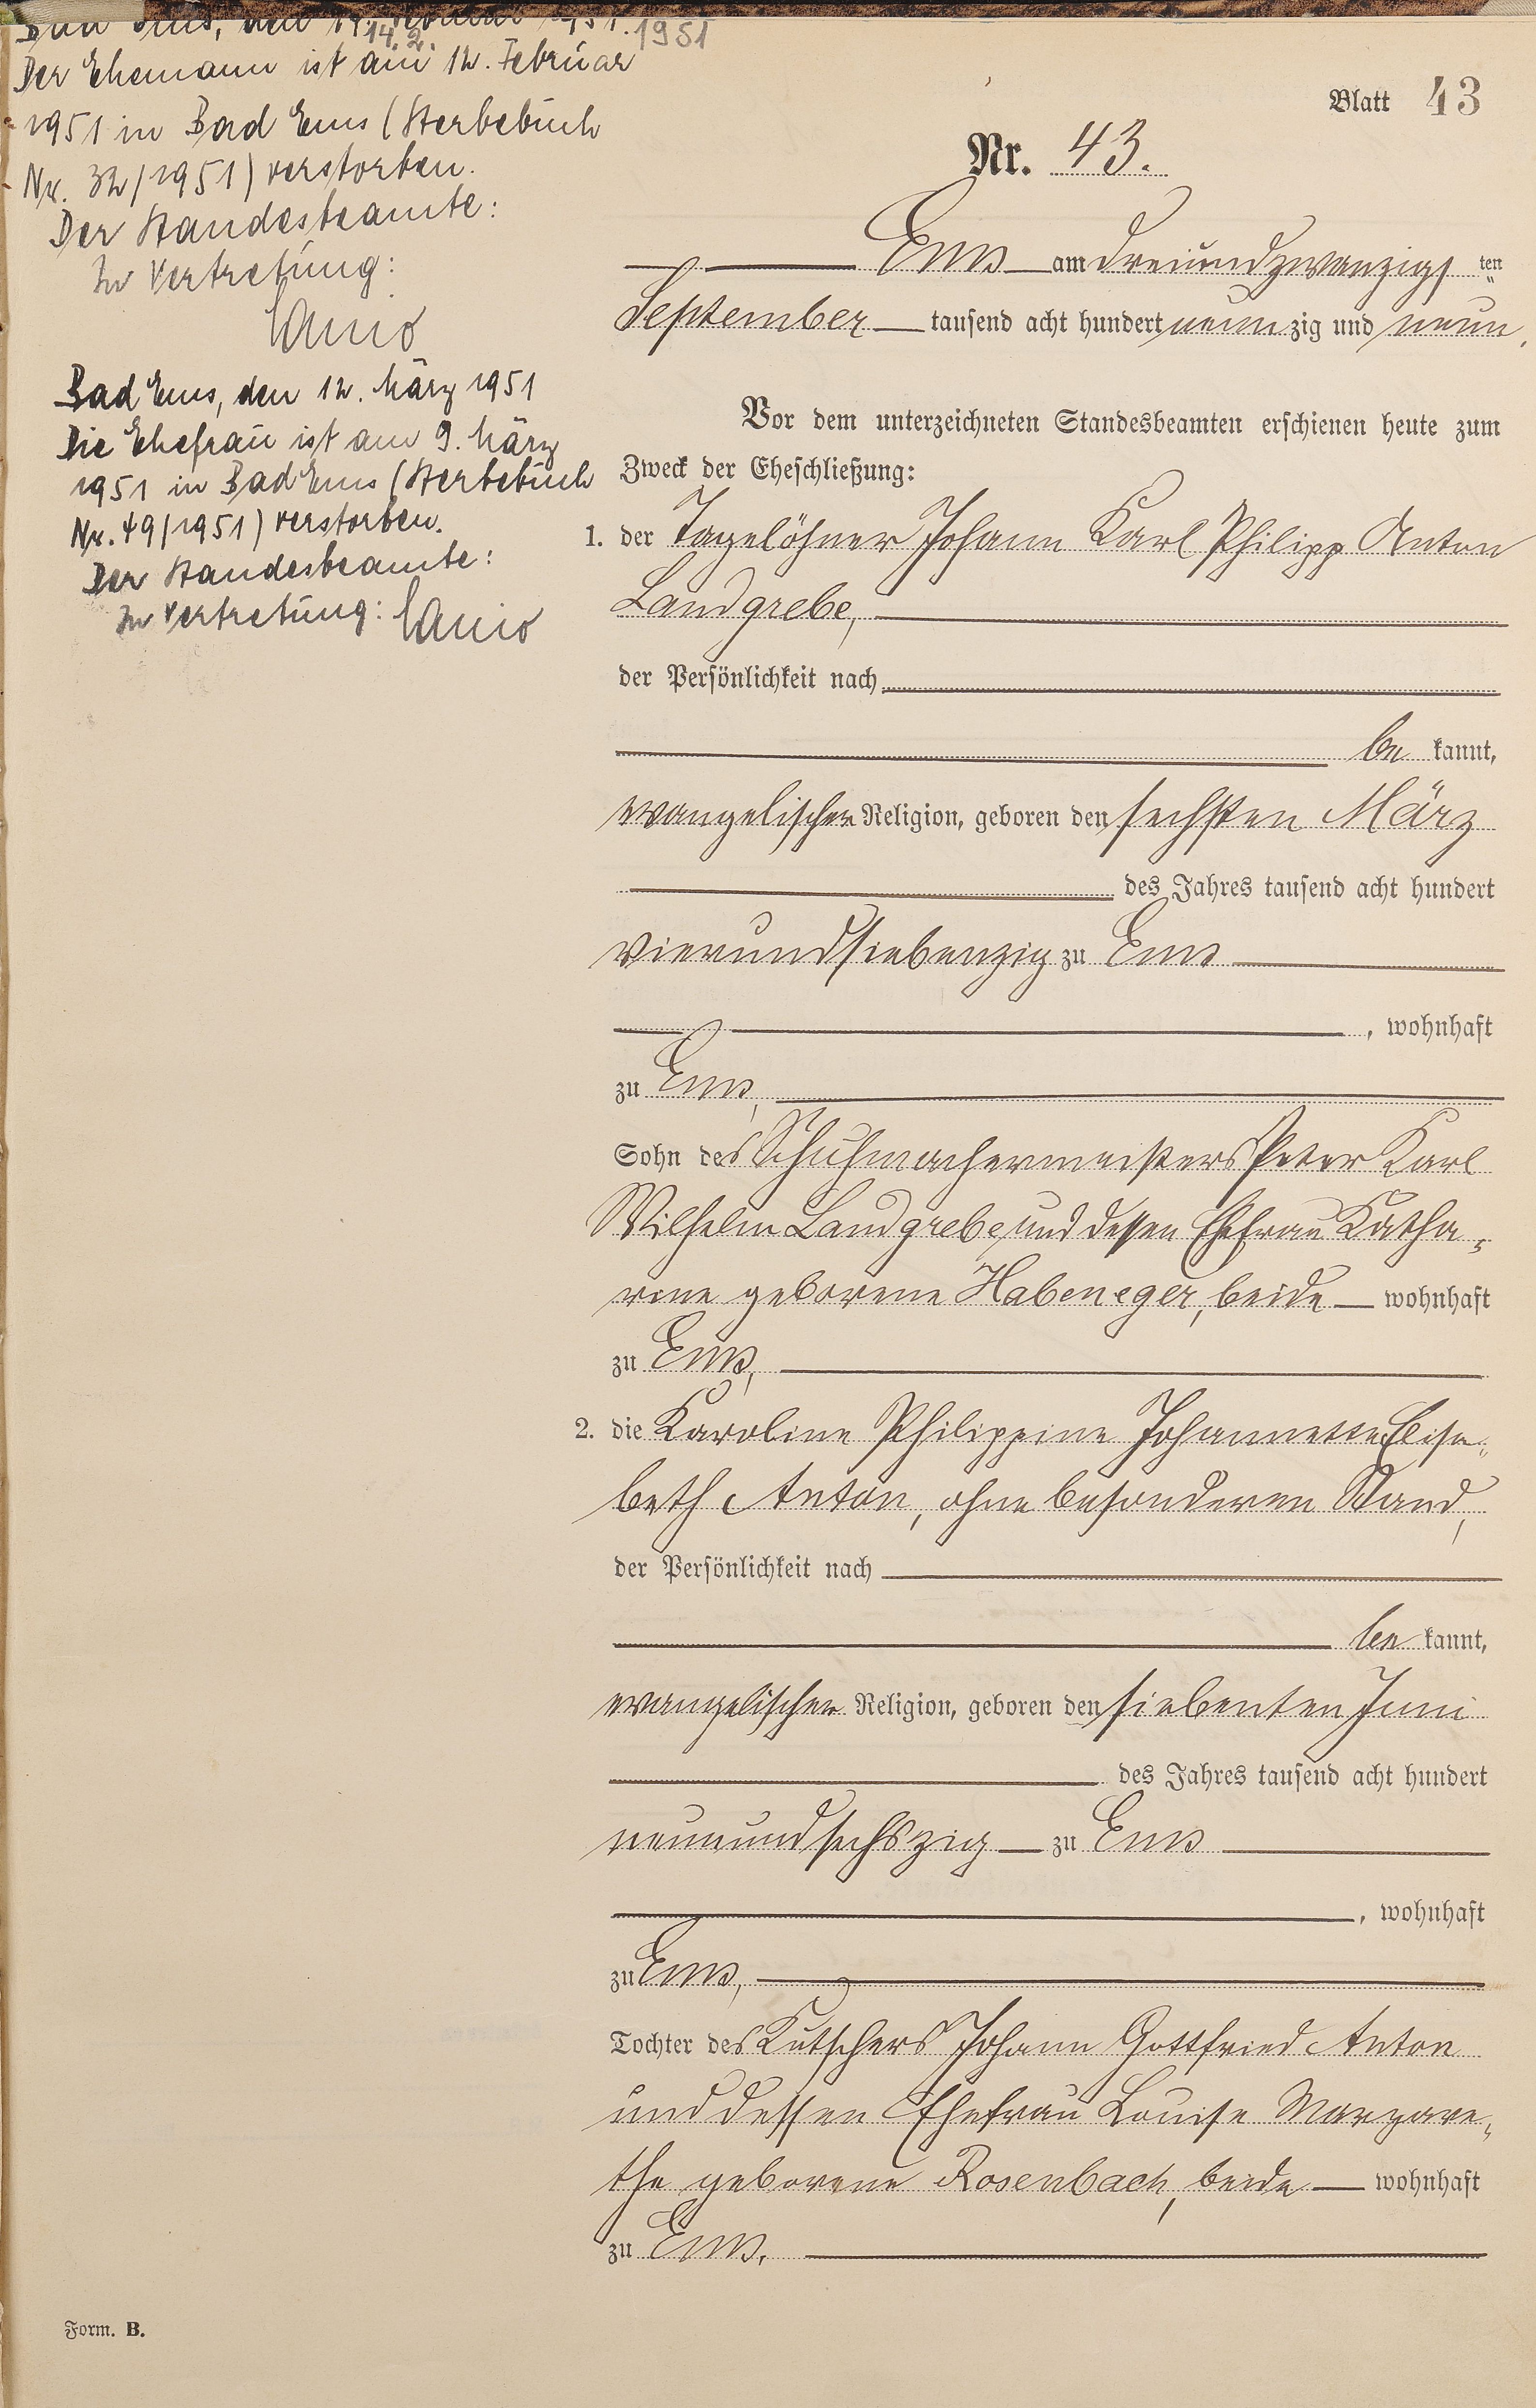 Bad Ems, den 14. Februar 1951.
14. 2. 1951
Der Ehemann ist am 12. Februar
1951 in Bad Ems (Sterbebuch
Nr. 32/1951) verstorben.
Der Standesbeamte:
In Vertretung:
Bad Ems, den 12. März 1951
Die Ehefrau ist am 9. März
1951 in Bad Ems (Sterbebuch
Nr. 49/1951) verstorben.
Der Standesbeamte:
In Vertretung:
Blatt 43
Nr. 43.
Ems am dreiundzwanzigs ten
September tausend acht hundert neunzig und neun.
Vor dem unterzeichneten Standesbeamten erschienen heute zum
Zweck der Eheschließung:
1. der Tagelöhner Johann Karl Philipp Anton
Landgrebe,
der Persönlichkeit nach
be kannt,
evangelischer Religion, geboren den sechsten März
des Jahres tausend acht hundert
vierundsiebenzig zu Ems
, wohnhaft
zu Ems,
Sohn des Schuhmachermeisters Peter Karl
Wilhelm Landgrebe und dessen Ehefrau Katha-
rine geborene Habeneger, beide wohnhaft
zu Ems,
2. die Karoline Philippine Johannette Elisa-
beth Anton, ohne besonderen Stand,
der Persönlichkeit nach
be kannt,
evangelischer Religion, geboren den siebenten Juni
des Jahres tausend acht hundert
neunundsechszig zu Ems
, wohnhaft
zu Ems,
Tochter des Kutschers Johann Gottfried Anton
und dessen Ehefrau Louise Margare-
the geborene Rosenbach, beide wohnhaft
zu Ems.
Form. B.